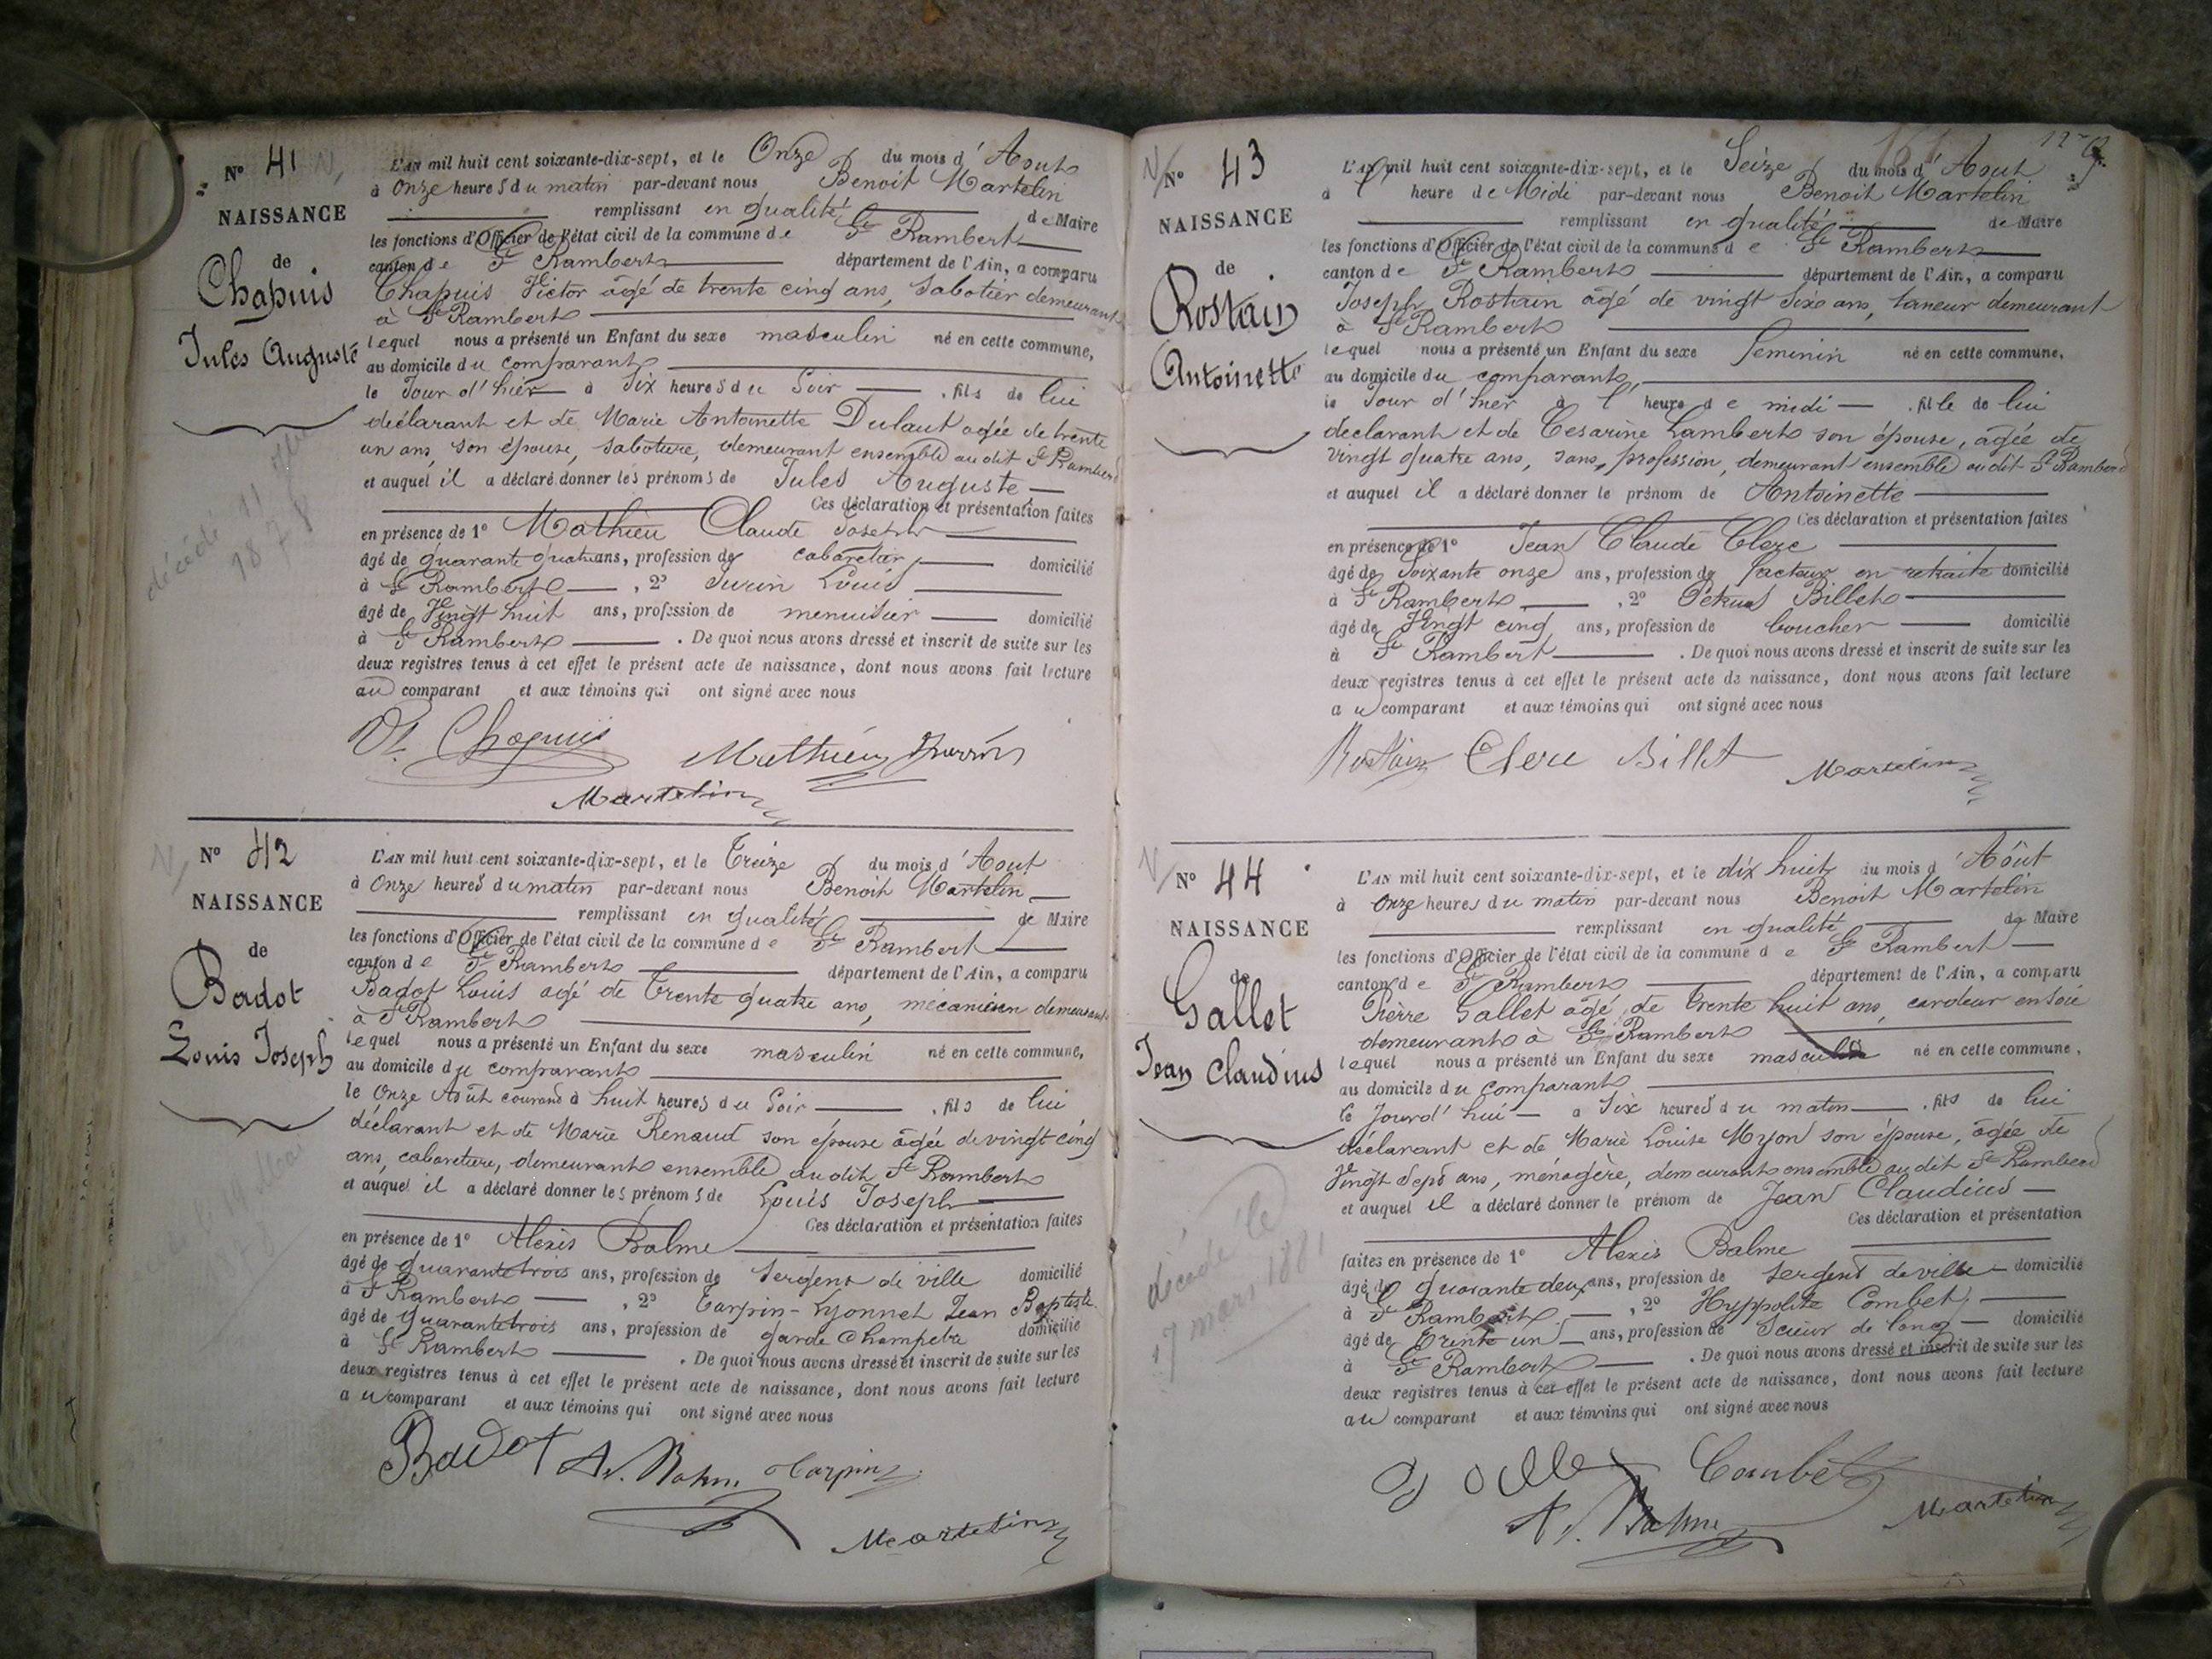 N° 41
NAISSANCE
de
Chapuis
Jules Auguste
décédé 11
1878
L'AN mil huit cent soixante-dix-sept, et le Onze du mois d'Aout
à Onze heures du matin par-devant nous Benoit Martelin
remplissant en qualité de Maire
les fonctions d'Officier de l'état civil de la commune de St Rambert
canton de St Rambert département de l'Ain, a comparu
Chapuis Victor âgé de trente cinq ans, Sabotier demeurant
à St Rambert
lequel nous a présenté un Enfant du sexe masculin né en cette commune,
au domicile du comparant
le Jour d'hier à Six heures du Soir , fils de lui
déclarant et de Marie Antoinette Dulaut agée de trente
un ans, son épouse, sabotière, demeurant ensemble au dit St Rambert
et auquel il a déclaré donner les prénoms de Jules Auguste
Ces déclaration et présentation faites
en présence de 1° Mathieu Claude Joseph
âgé de quarante quatre ans, profession de cabaretier domicilié
à St Rambert , 2° Louis
âgé de Vingt huit ans, profession de menuisier domicilié
à St Rambert . De quoi nous avons dressé et inscrit de suite sur les
deux registres tenus à cet effet le présent acte de naissance, dont nous avons fait lecture
au comparant et aux témoins qui ont signé avec nous
Vr Chapuis Mathieu
Martelin
N° 42
NAISSANCE
de
Badot
Louis Joseph
L'AN mil huit cent soixante-dix-sept, et le Treize du mois d'Aout
à Onze heures du matin par-devant nous Benoit Martelin
remplissant en qualité de Maire
les fonctions d'Officier de l'état civil de la commune de St Rambert
canton de St Rambert département de l'Ain, a comparu
Badot Louis agé de Trente quatre ans, mécanicien demeurant
à St Rambert
lequel nous a présenté un Enfant du sexe masculin né en cette commune,
au domicile du comparant
le Onze Août courant à huit heures du Soir , fils de lui
déclarant et de Marie Renaud son épouse âgée de vingt cinq
ans, cabaretière, demeurant ensemble au dit St Rambert
et auquel il a déclaré donner les prénoms de Louis Joseph
Ces déclaration et présentation faites
en présence de 1° Alexis Balme
âgé de quarantetrois ans, profession de Sergent de ville domicilié
à St Rambert , 2° Tarpin-Lyonnet Jean Baptiste
âgé de quarantetrois ans, profession de garde Champêtre domicilié
à St Rambert . De quoi nous avons dressé et inscrit de suite sur les
deux registres tenus à cet effet le présent acte de naissance, dont nous avons fait lecture
au comparant et aux témoins qui ont signé avec nous
Badot A. Balme Tarpin
Martelin
N° 43
NAISSANCE
de
Rostain
Antoinette
L'AN mil huit cent soixante-dix-sept, et le Seize du mois d'Aout
à l' heure de Midi par-devant nous Benoit Martelin
remplissant en qualité de Maire
les fonctions d'Officier de l'état civil de la commune de St Rambert
canton de St Rambert département de l'Ain, a comparu
Joseph Rostain agé de vingt Six ans, taneur demeurant
à St Rambert
lequel nous a présenté un Enfant du sexe feminin né en cette commune,
au domicile du comparant,
le Jour d'hier à l' heure de midi , fille de lui
declarant et de Cesarine Lambert son épouse, agée de
vingt quatre ans, sans profession, demeurant ensemble au dit St Rambert
et auquel il a déclaré donner le prénom de Antoinette
Ces déclaration et présentation faites
en présence de 1° Jean Claude Clerc
âgé de Soixante onze ans, profession de facteur en retraite domicilié
à St Rambert , 2° Pétrus Billet
âgé de Vingt cinq ans, profession de boucher domicilié
à St Rambert . De quoi nous avons dressé et inscrit de suite sur les
deux registres tenus à cet effet le présent acte de naissance, dont nous avons fait lecture
au comparant et aux témoins qui ont signé avec nous
Rostain Clerc Billet Martelin
N° 44
NAISSANCE
de
Gallet
Jean Claudius
décédé le
17 mars 1881
L'AN mil huit cent soixante-dix-sept, et le dix huit du mois d'Aôut
à Onze heures du matin par-devant nous Benoit Martelin
remplissant en qualité de Maire
les fonctions d'Officier de l'état civil de la commune de St Rambert
canton de St Rambert département de l'Ain, a comparu
Pierre Gallet agé de trente huit ans, cardeur en soie
demeurant à St Rambert
lequel nous a présenté un Enfant du sexe masculin né en cette commune,
au domicile du comparant
ce jourd'hui à Six heures du matin , fils de lui
déclarant et de Marie Louise Myon son épouse, agée de
Vingt Sept ans, ménagère, demeurant ensemble au dit St Rambert
et auquel il a déclaré donner le prénom de Jean Claudius
Ces déclaration et présentation
faites en présence de 1° Alexis Balme
âgé de quarante deux ans, profession de Sergent de ville domicilié
à St Rambert , 2° Hyppolite Combet
âgé de Trente un ans, profession de Scieur de long domicilié
à St Rambert . De quoi nous avons dressé et inscrit de suite sur les
deux registres tenus à cet effet le présent acte de naissance, dont nous avons fait lecture
au comparant et aux témoins qui ont signé avec nous
Combet
A. Balme Martelin